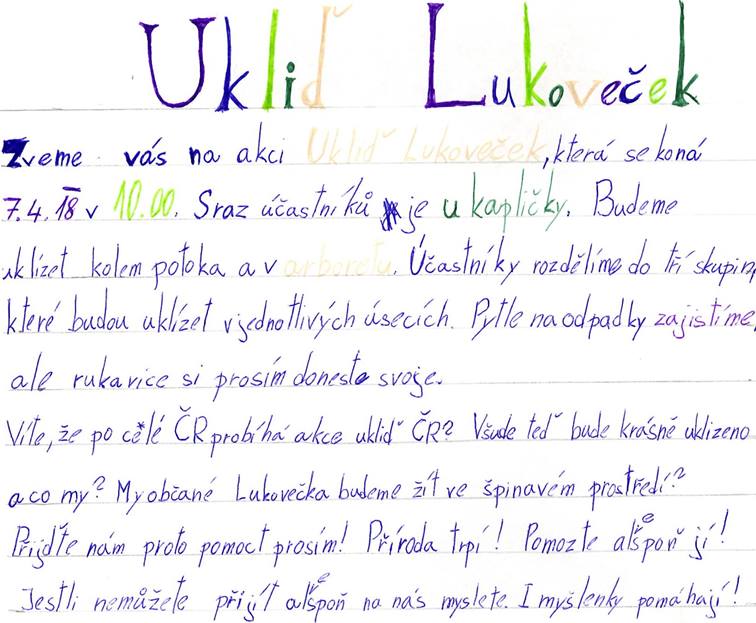 Ukliď Lukoveček
Zveme vás na akci Ukliď Lukoveček, která se koná
7.4.18 v 10.00. Sraz účastníků je u kapličky. Budeme
uklízet kolem potoka a v arboretu. Účastníky rozdělíme do tří skupin,
které budou uklízet v jednotlivých úsecích. Pytle na odpadky zajistíme,
ale rukavice si prosím doneste svoje.
Víte, že po celé ČR probíhá akce ukliď ČR? Všude teď bude krásně uklizeno
a co my? My občané Lukovečka budeme žít ve špinavém prostředí?
Přijďte nám proto pomoct prosím! Příroda trpí! Pomozte alespoň jí!
Jestli nemůžete přijít alespoň na nás myslete. I myšlenky pomáhají!